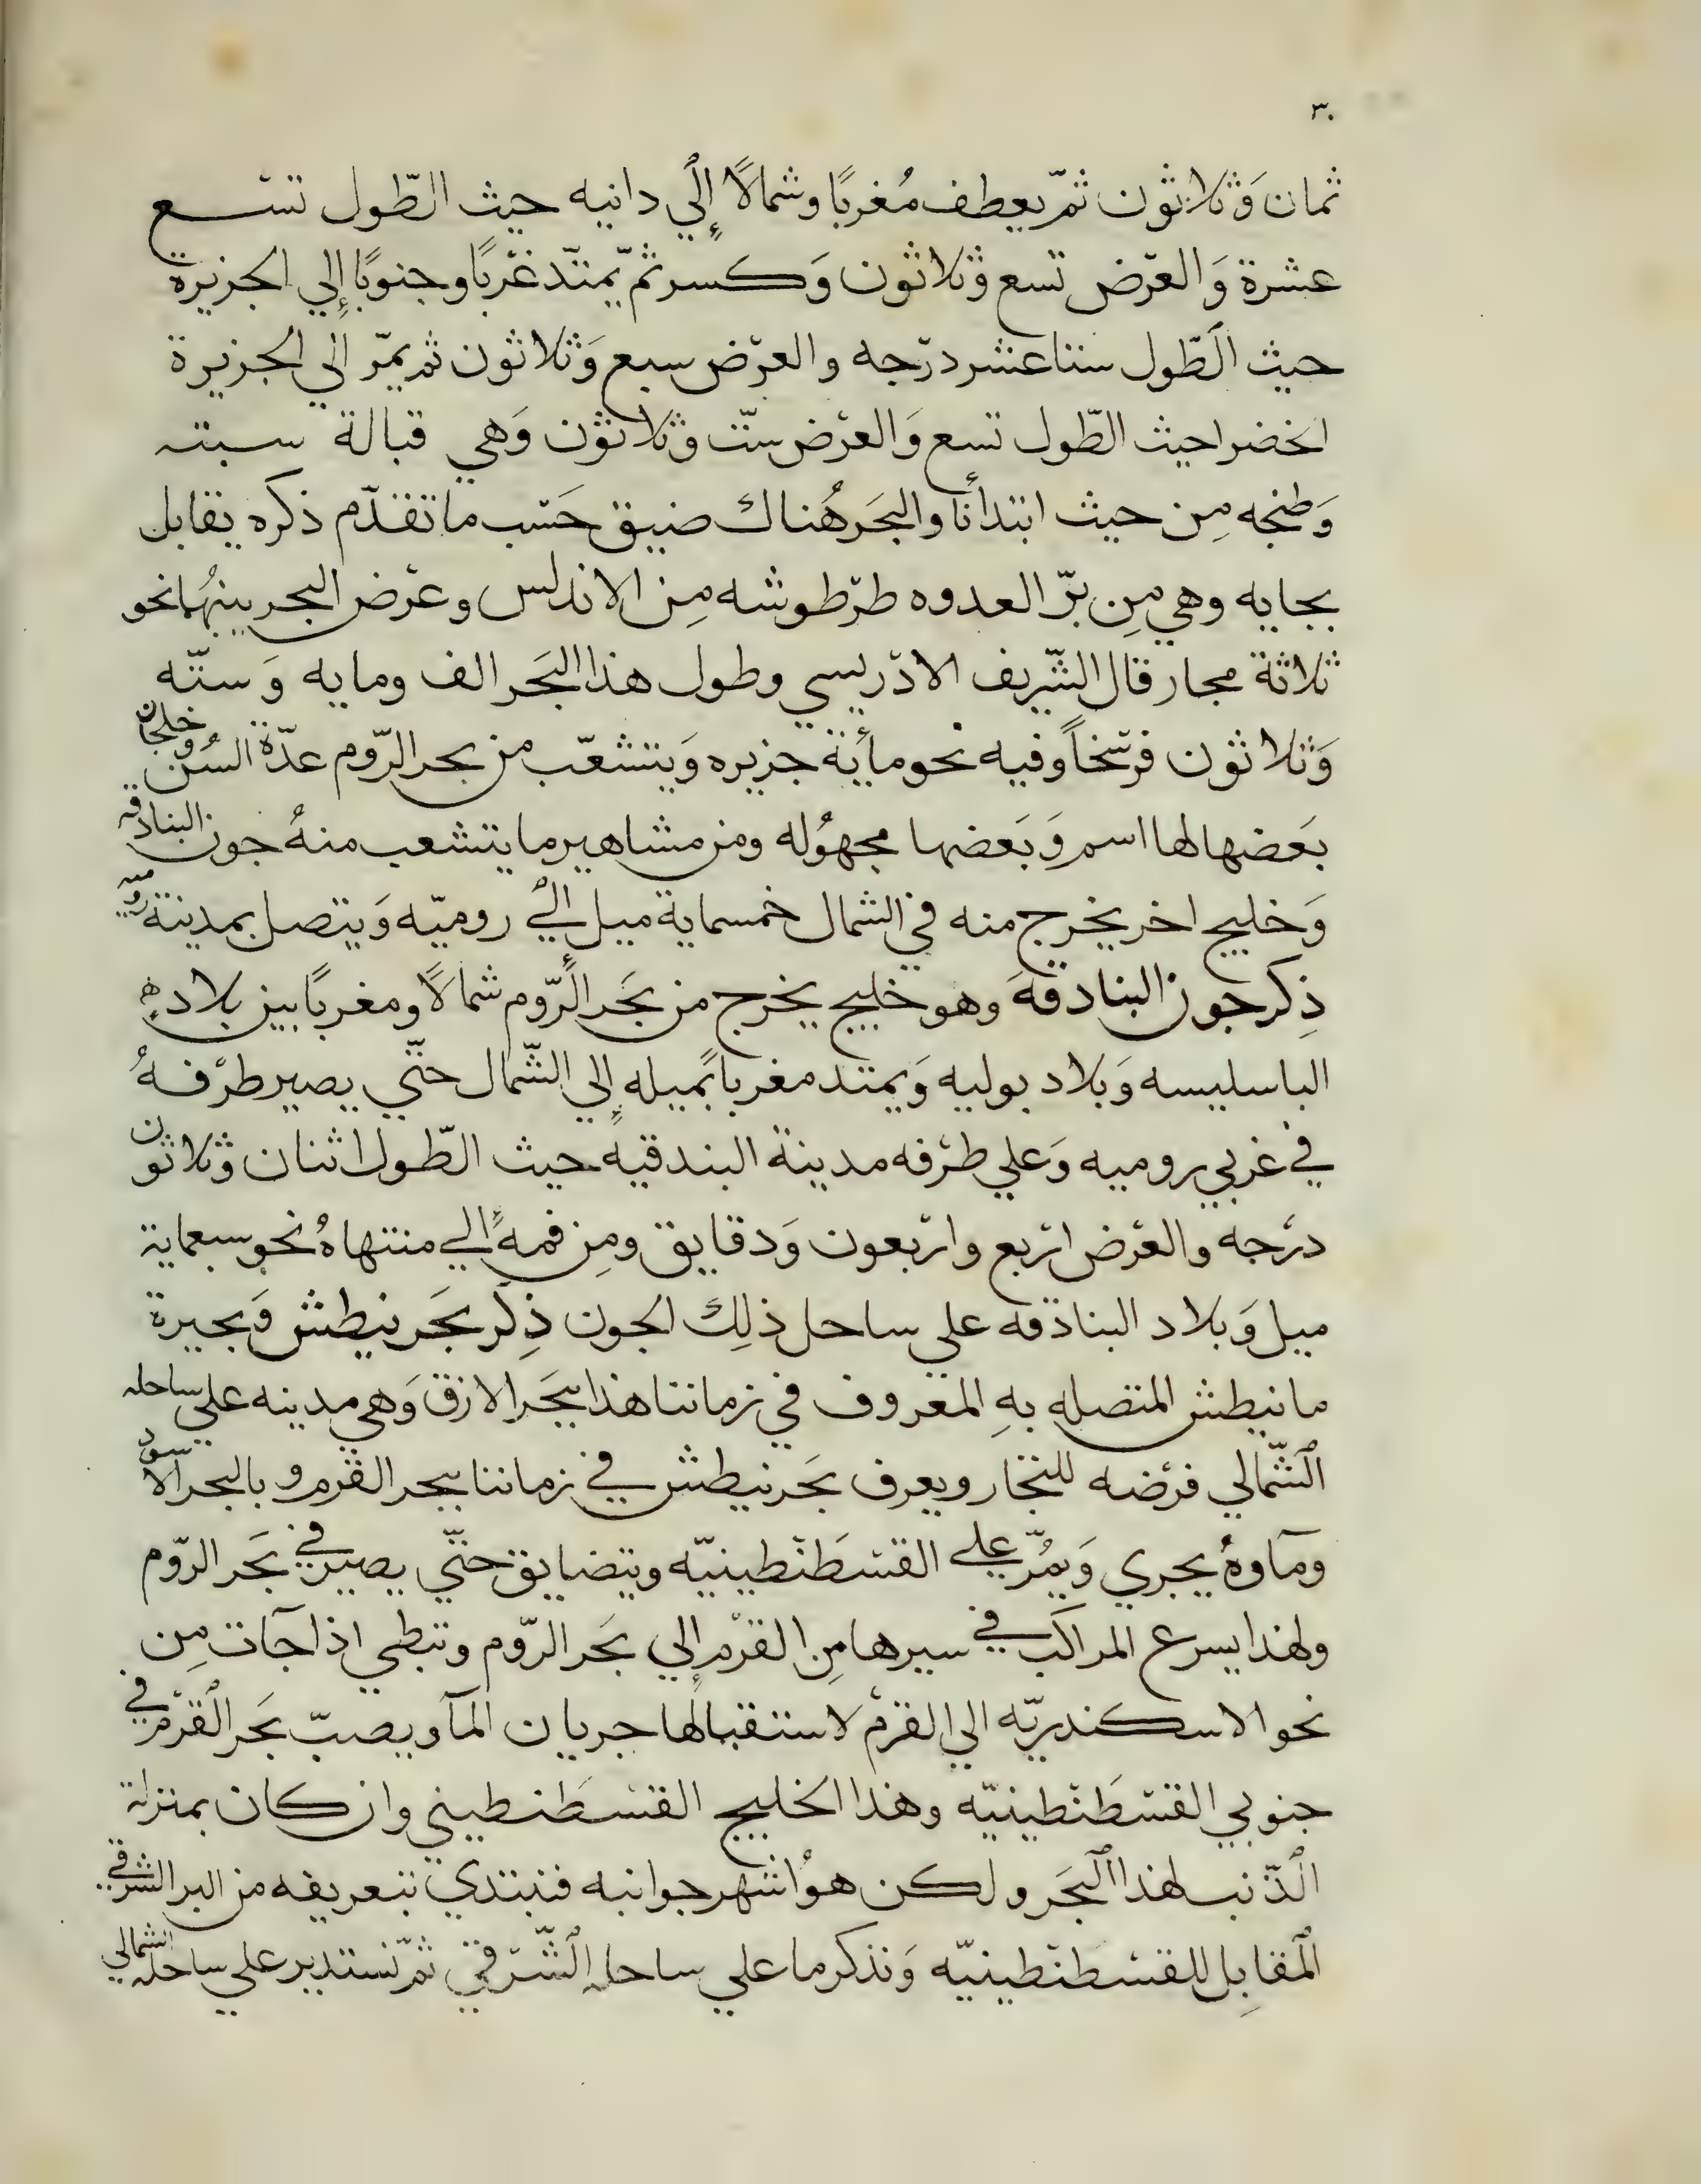 ٣٠
ثمان وَثلاثون ثمّ يعطف مُغربًا وشمالًا إلي دانيه حيث الطّول تسع
عشرة وَالعرض تسع وثلاثون وَكسر ثم يمتدّ غربًا وجنوبًا إلي الجزيرة
حيث الطّول ستا عشر درجه والعرض سبع وَثلاثون ثم يمرّ الي الجزيرة
الخضرا حيث الطّول تسع وَالعرض ستّ وثلاثون وَهي قبالة سبته
وَطنجه مِن حيث ابتدأنا والبحَر هُناك ضيق حَسب ما تقدّم ذكره يقابل
بجايه وهي مِن برّ العدوه طرطوشه مِن الاندلس وعرض البحر بينهُما نحو
ثلاثة مجار قال الشّريف الادريسي وطول هذا البحَر الف ومايه وَستّه
وَثلاثون فرسخاً وفيه نحو مأية جزيره وَيتشعّب من بحر الرّوم عدّة السُن وخلجان
بَعضها لها اسم وَبَعضها مجهُوله ومن مشاهير ما يتشعب منهُ جون البنادقه
وَخليج اخر يخرج منه في الشمال خمسماية ميل الي روميّه وَيتصل بمدينة روميه
ذِكر جون البنادقه وهو خليج يخرج من بحَر الرّوم شمالًا ومغربًا بين بلاده
الباسليسه وَبلاد بوليه وَيمتد مغرباً بميله إلي الشّمال حتّي يصير طرفهُ
في غربي روميه وَعلي طرفه مدينة البندقيه حيث الطّول اثنان وثلاثون
درجه والعرض اربع واربعون وَدقايق ومِن فمه الي منتهاهُ نحو سبعماية
ميل وَبلاد البنادقه علي ساحل ذلِك الجون ذِكر بحَر نيطش وَبحيرة
مانيطش المتصله بهِ المعروف في زماننا هذا ببحَر الازق وَهي مدينه علي ساحله
الشّمالي فرضه للتجار ويعرف بحَر نيطش في زماننا ببحر القرم وبالبحر الاسود
ومآوهُ يجري وَيمُرّ علي القسطَنطينيّه ويتضايق حتّي يصير في بحَر الرّوم
ولهذا يسرع المراكب في سيرها مِن القرم إلي بحَر الرّوم وتبطي اذا جآت مِن
نحو الاسكندريّه الي القرم لاستقبالها جريان المآ ويصبّ بحَر القرم في
جنوبي القسطَنطينيّه وهذا الخليج القسطَنطيني وان كان بمنزلة
الذّنب لهذا البحَر ولكن هو اشهر جوانبه فنبتدي بتعريفه من البر الشرقي
المقابِل للقسطَنطينيّه وَنذكر ما علي ساحله الشّرقي ثمّ نستدير علي ساحله الشمالي